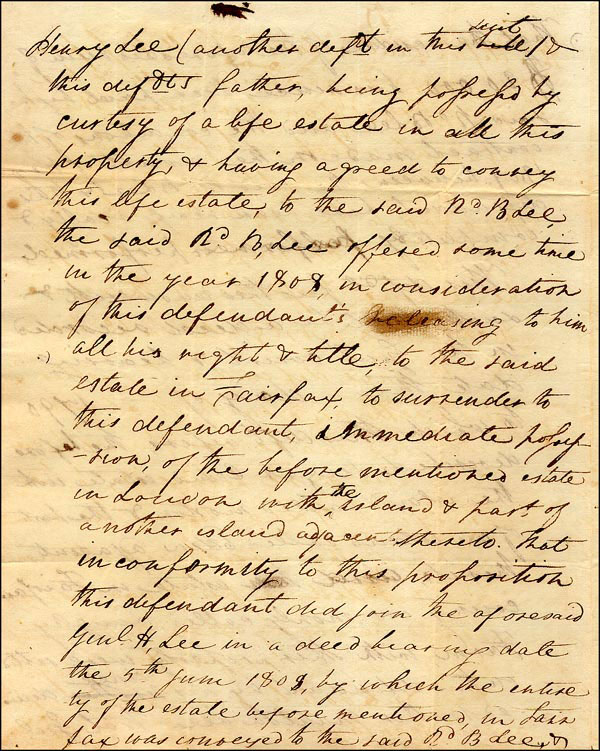 Henry Lee (another deft in this suit) &
this defdts father, being possess'd by
curtesy of a life estate in all this
property, & having agreed to convey
this life estate, to the said Rd. B Lee,
the said Rd B, Lee offered some time
in the year 1808, in consideration
of this defendant's releasing to him
all his right & title, to the said
estate in Fairfax, to surrender to
this defendant, immediate posses-
-sion, of the before mentioned estate
in Loudon with the island & part of
another island adjacent thereto. That
in conformity to this proposition
this defendant did join the aforesaid
Genl. H, Lee in a deed bearing date
the 5th June 1808, by which the entire
ty of the estate before mentioned, in Fair
fax was conveyed to the said Rd B Lee, &